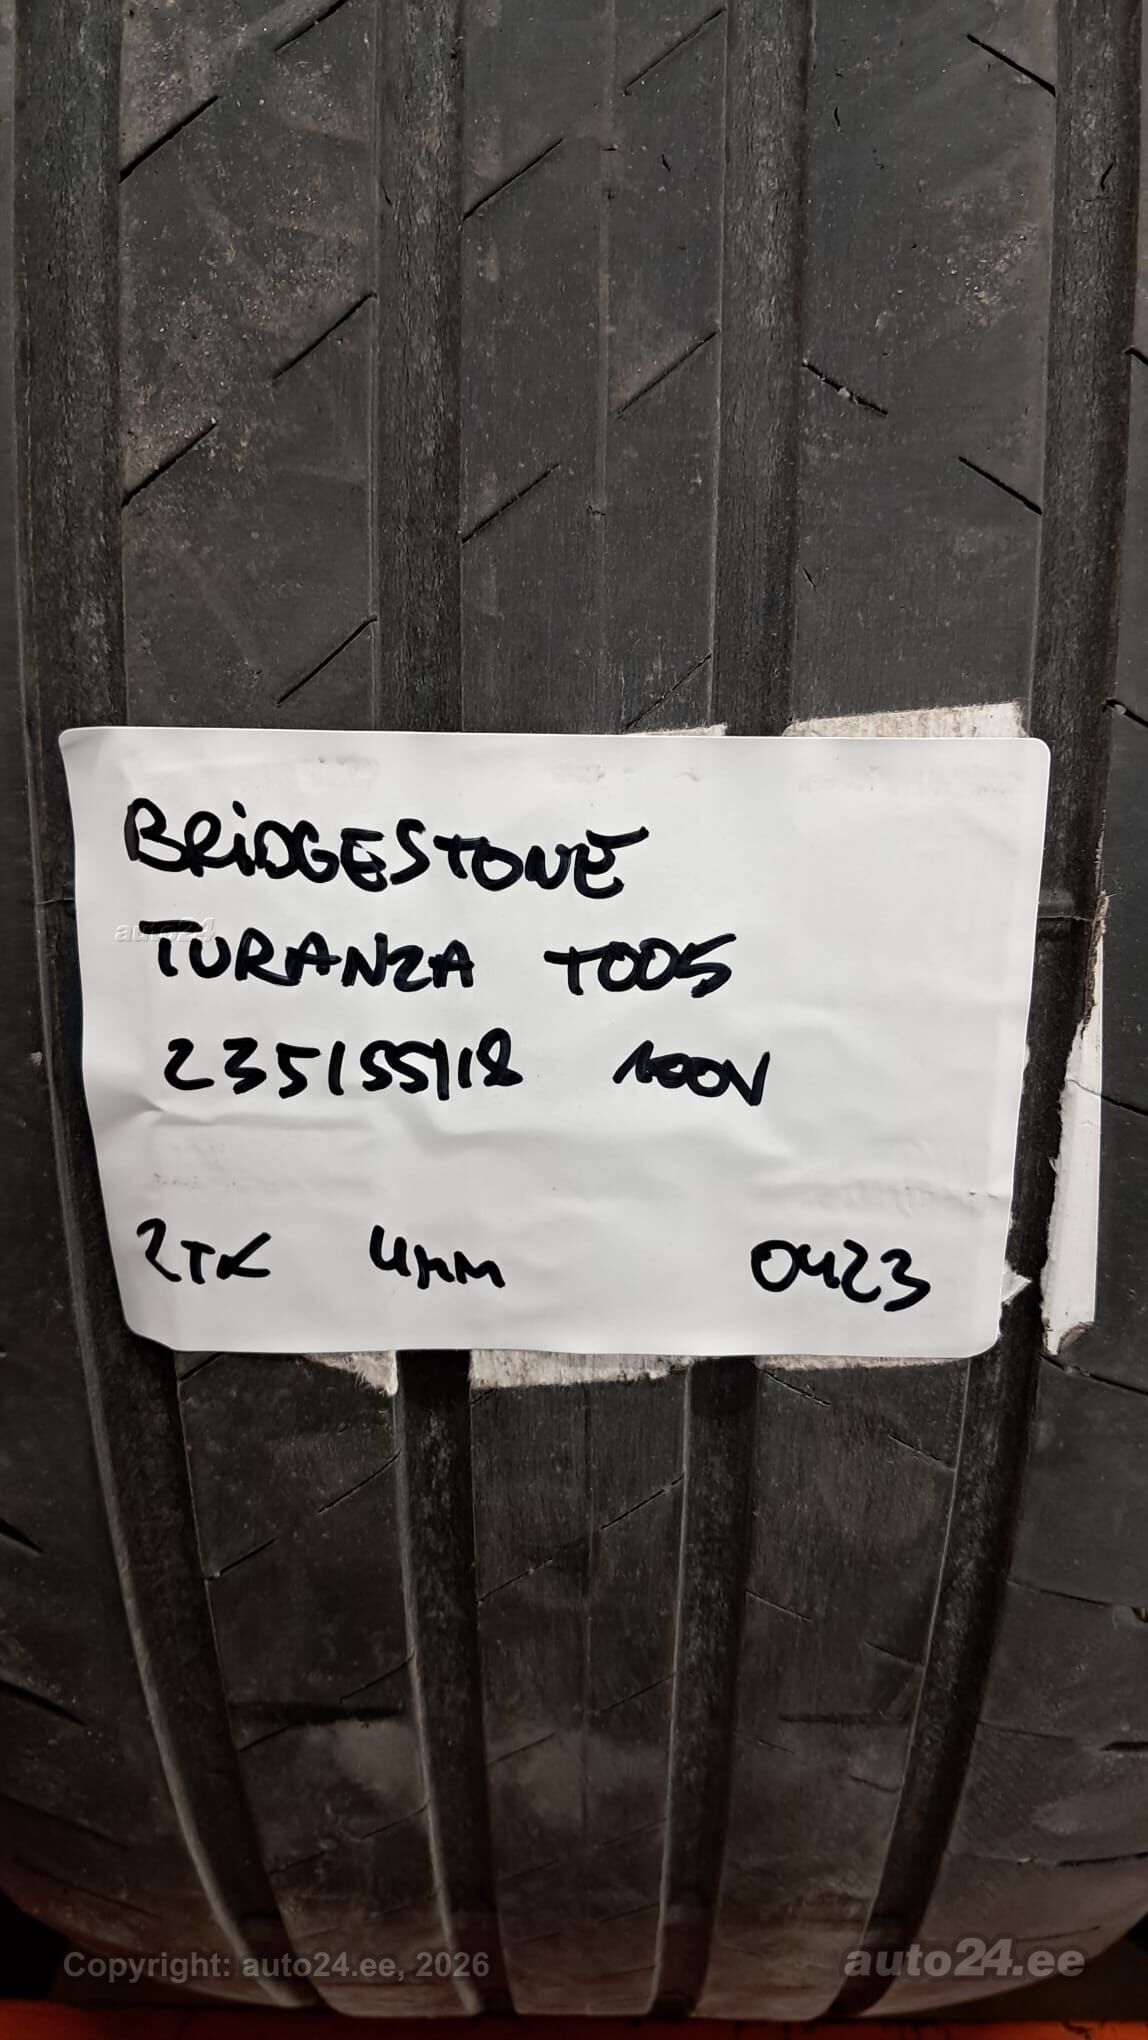 BRiDGESTONE
auto24
TURANZA T005
235/55/18 100V
2TK 4mm 0423
Copyright: auto24.ee, 2026 auto24.ee